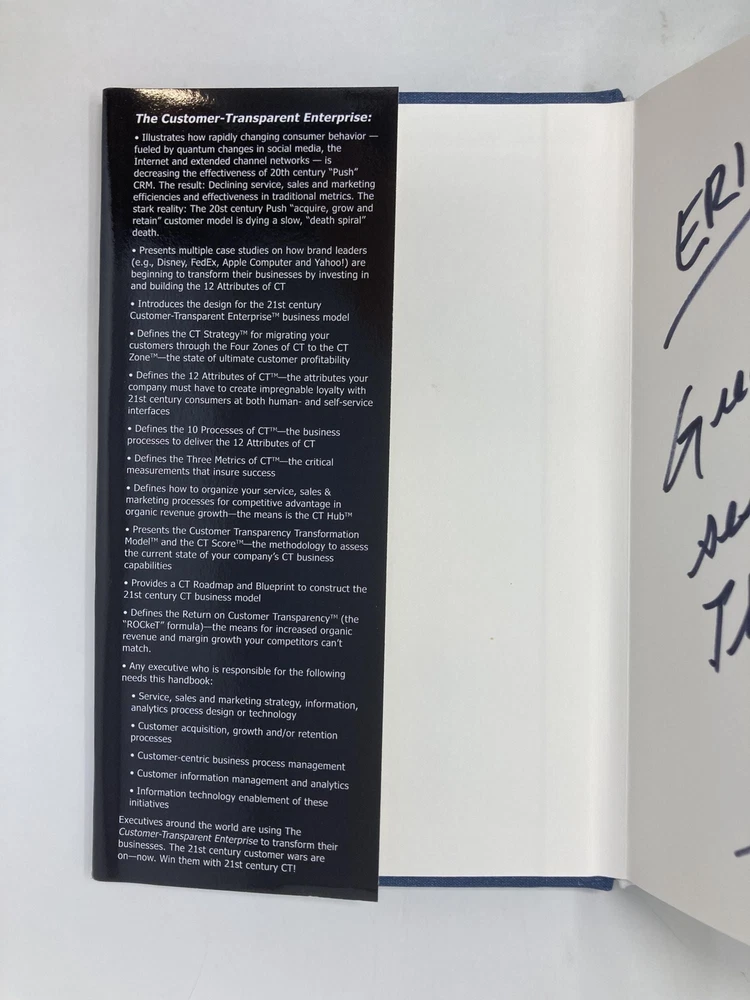 The Customer-Transparent Enterprise:
• Illustrates how rapidly changing consumer behavior —
fueled by quantum changes in social media, the
Internet and extended channel networks — is
decreasing the effectiveness of 20th century “Push”
CRM. The result: Declining service, sales and marketing
efficiencies and effectiveness in traditional metrics. The
stark reality: The 20st century Push “acquire, grow and
retain” customer model is dying a slow, “death spiral”
death.
• Presents multiple case studies on how brand leaders
(e.g., Disney, FedEx, Apple Computer and Yahoo!) are
beginning to transform their businesses by investing in
and building the 12 Attributes of CT
• Introduces the design for the 21st century
Customer-Transparent Enterprise™ business model
• Defines the CT Strategy™ for migrating your
customers through the Four Zones of CT to the CT
Zone™—the state of ultimate customer profitability
• Defines the 12 Attributes of CT™—the attributes your
company must have to create impregnable loyalty with
21st century consumers at both human- and self-service
interfaces
• Defines the 10 Processes of CT™—the business
processes to deliver the 12 Attributes of CT
• Defines the Three Metrics of CT™—the critical
measurements that insure success
• Defines how to organize your service, sales &
marketing processes for competitive advantage in
organic revenue growth—the means is the CT Hub™
• Presents the Customer Transparency Transformation
Model™ and the CT Score™—the methodology to assess
the current state of your company’s CT business
capabilities
• Provides a CT Roadmap and Blueprint to construct the
21st century CT business model
• Defines the Return on Customer Transparency™ (the
“ROCkeT” formula)—the means for increased organic
revenue and margin growth your competitors can’t
match.
• Any executive who is responsible for the following
needs this handbook:
• Service, sales and marketing strategy, information,
analytics process design or technology
• Customer acquisition, growth and/or retention
processes
• Customer-centric business process management
• Customer information management and analytics
• Information technology enablement of these
initiatives
Executives around the world are using The
Customer-Transparent Enterprise to transform their
businesses. The 21st century customer wars are
on—now. Win them with 21st century CT!
ERI